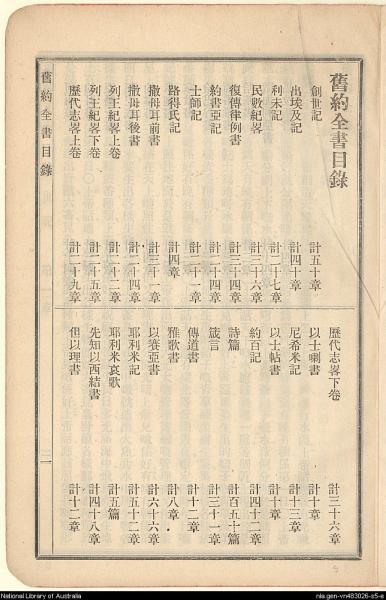 舊約全書目錄
創世記 計五十章
出埃及記 計四十章
利未記 計二十七章
民數紀畧 計三十六章
復傳律例書 計三十四章
約書亞記 計二十四章
士師記 計二十一章
路得氏記 計四章
撒母耳前書 計三十一章
撒母耳後書 計二十四章
列王紀畧上卷 計二十二章
列王紀畧下卷 計二十五章
歷代志畧上卷 計二十九章
歷代志畧下卷 計三十六章
以士喇書 計十章
尼希米記 計十三章
以士帖書 計十章
約百記 計四十二章
詩篇 計百五十篇
箴言 計三十一章
傳道書 計十二章
雅歌書 計八章
以賽亞書 計六十六章
耶利米記 計五十二章
耶利米哀歌 計五篇
先知以西結書 計四十八章
但以理書 計十二章
舊約全書目錄
National Library of Australia
nla.gen-vn483026-s5-e